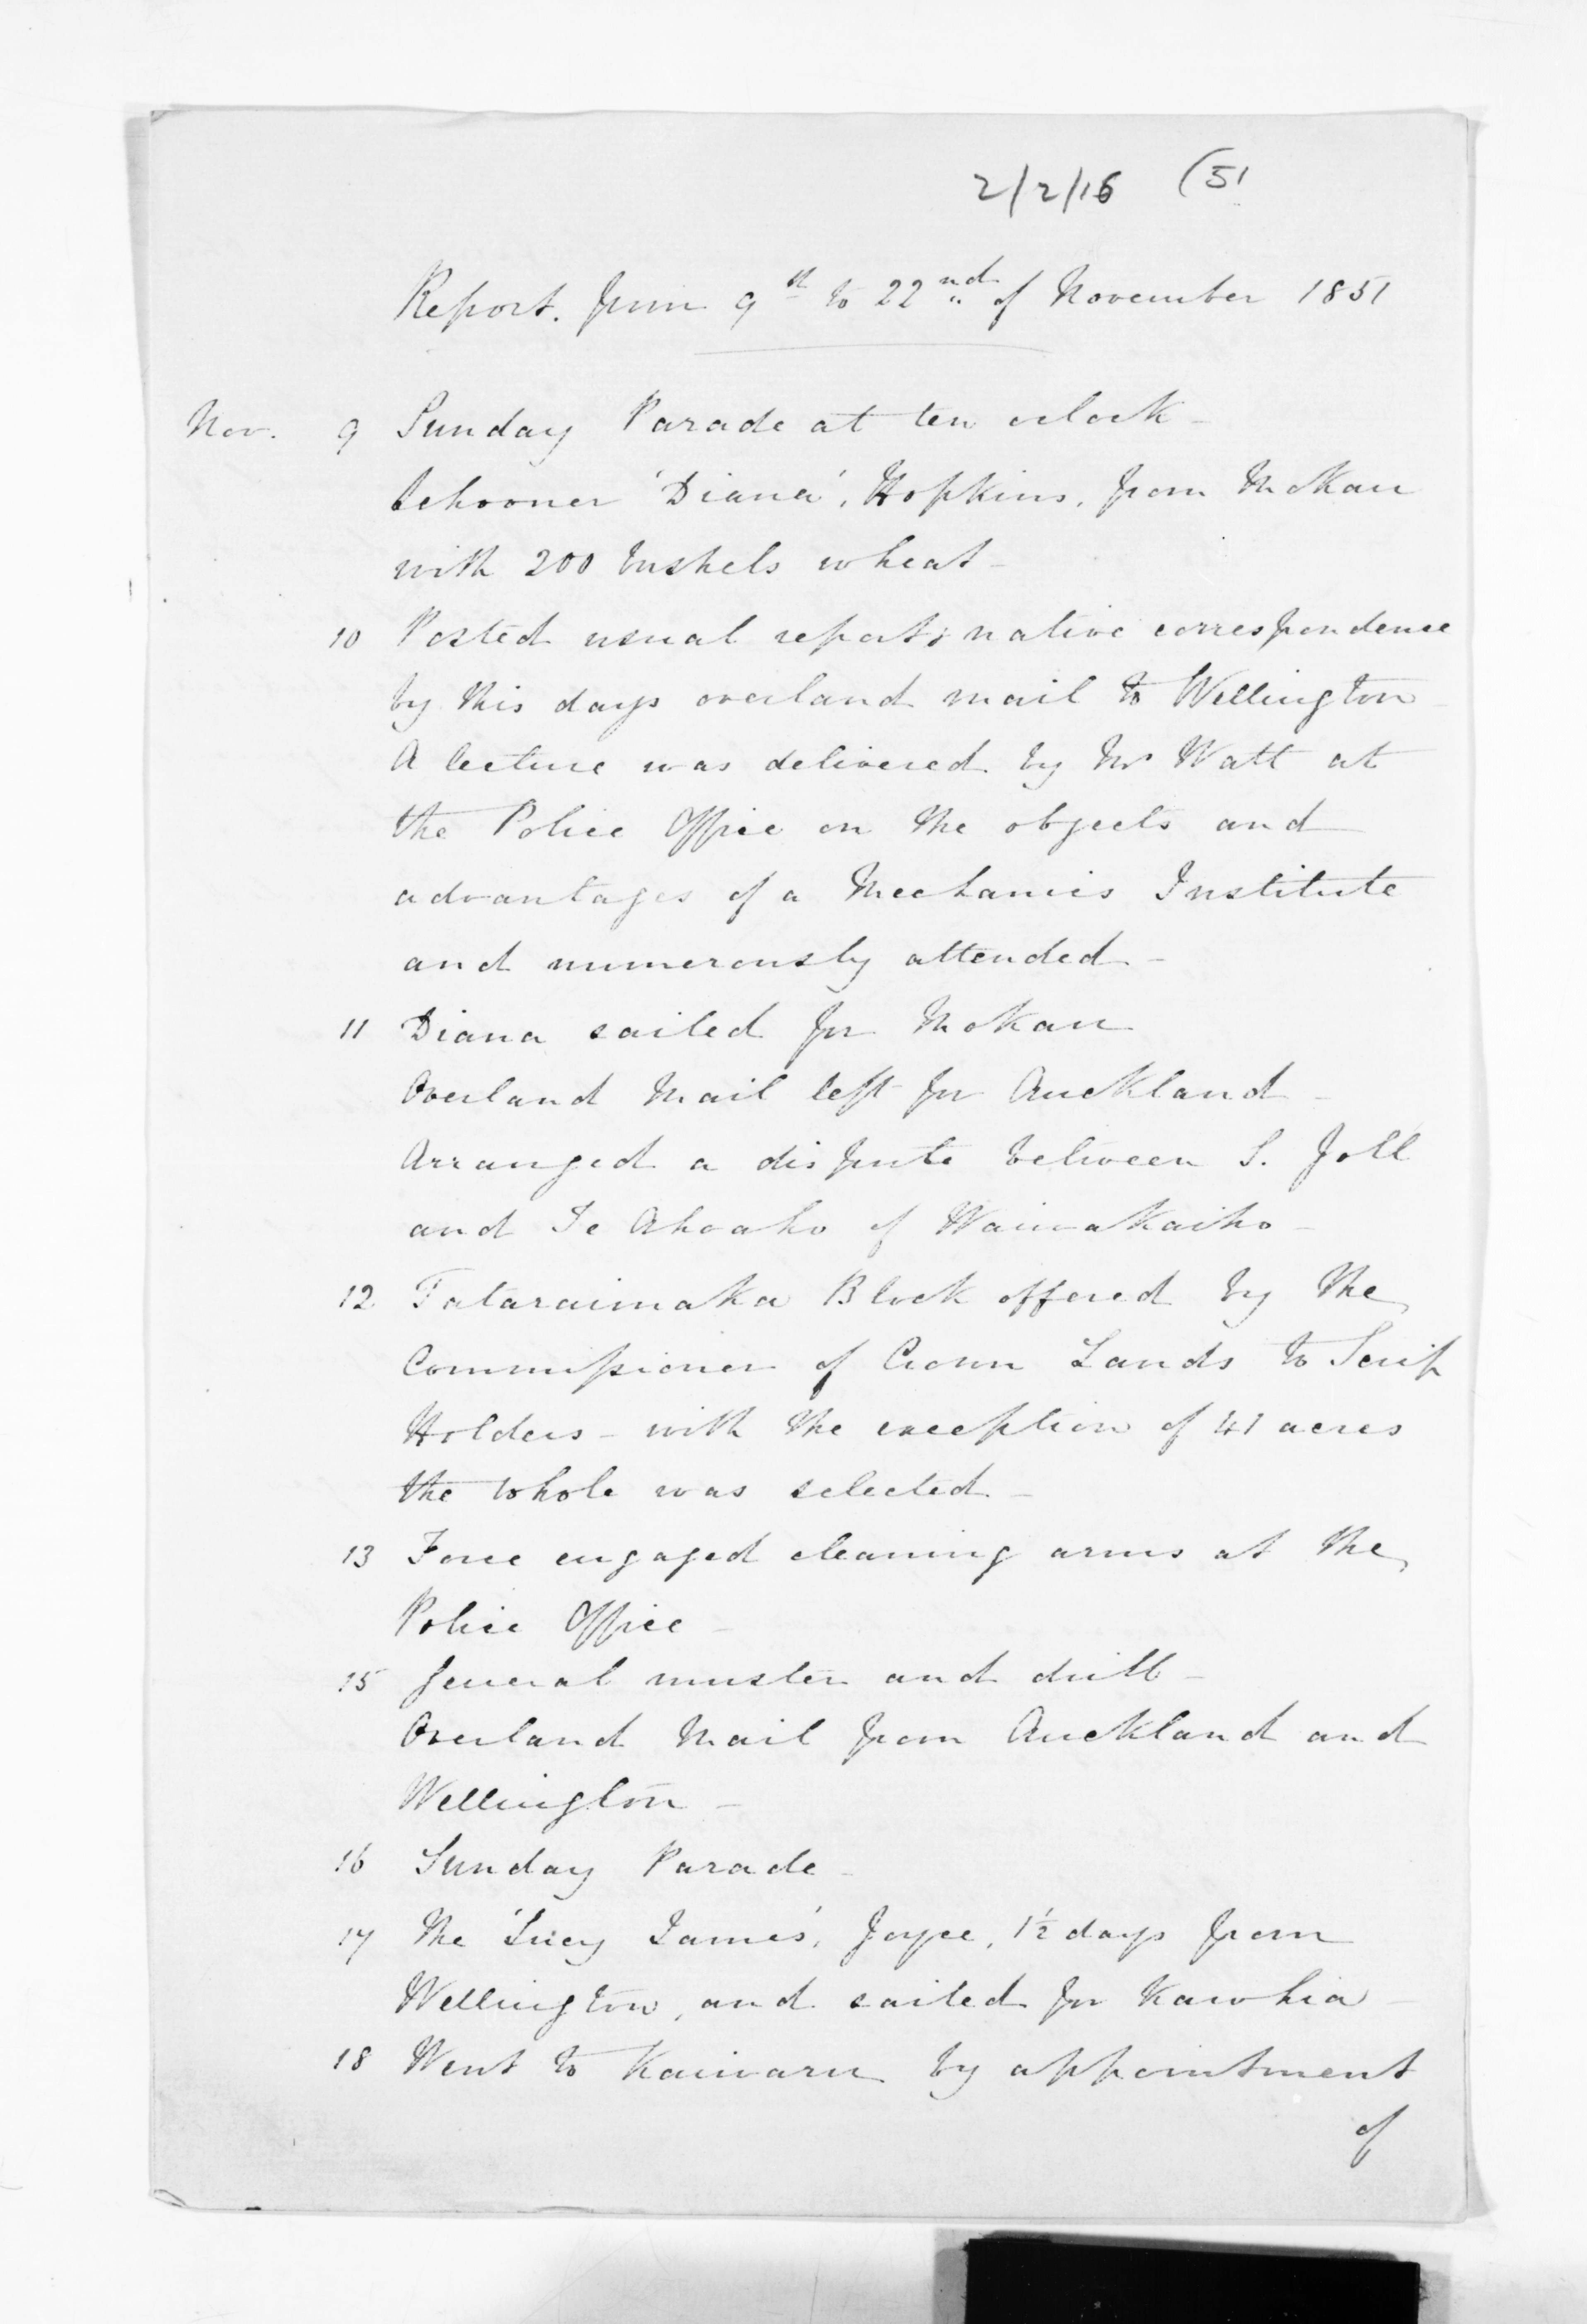 2/2/16 (51
Report. from 9th to 22nd of November 1851
Nov. 9 Sunday Parade at ten oclock -
Schooner 'Diana', Hopkins, from Mokau
with 200 bushels wheat -
10 Posted usual report & native correspondence
by this days overland mail to Wellington -
A lecture was delivered by Mr Watt at
the Police Office on the objects and
advantages of a Mechanics Institute
and numerously attended -
11 Diana sailed for Mokau
Overland Mail left for Auckland -
Arranged a dispute between S. Joll
and Te Ahoaho of Waiwakaiho -
12 Tataraimaka Block offered by the
Commissioner of Crown Lands to Scrip
Holders - with the exception of 41 acres
the whole was selected -
13 Force engaged cleaning arms at the
Police Office -
15 General muster and drill -
Overland Mail from Auckland and
Wellington -
16 Sunday Parade -
17 The 'Lucy James', Joyce, 1½ days from
Wellington, and sailed for Kawhia -
18 Went to Kaiwaru by appointment
of